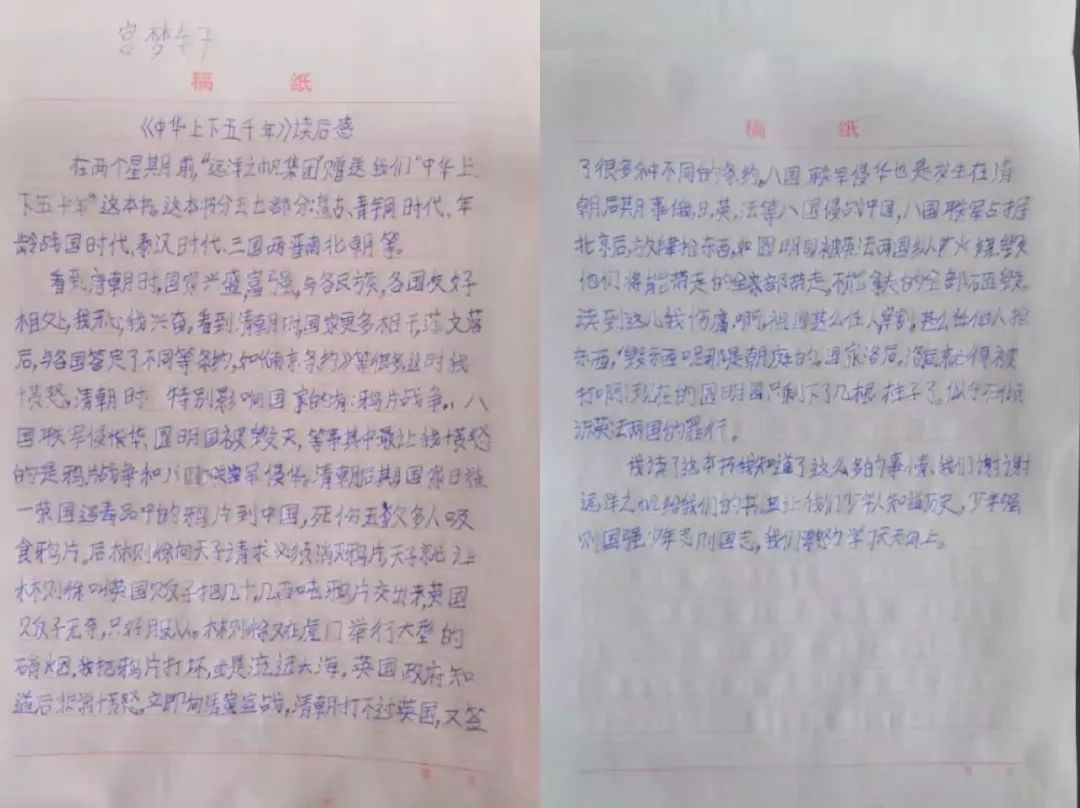 宫梦
稿 纸
《中华上下五千年》读后感
在两个星期前,"远洋之帆集团"赠送我们"中华上
下五千年"这本书。这本书分七部分:盘古、青铜时代、年
龄战国时代、秦汉时代、三国两晋南北朝等。
看到唐朝时,国家兴盛,富强,与各民族,各国友好
相处,我兴奋,看到清朝时,国家更多相,落
后,与各国签定了不同等条约,如《南京条约》等很多
愤怒,清朝时,特别影响国家的有:鸦片战争、八
国联军侵华,圆明园被毁灭,等事其中最让我愤怒
的是鸦片战争和八国联军侵华,清朝后期国家日
英国运毒品中的鸦片到中国,多人吸
食鸦片。后林则徐向天子请求必须消灭鸦片,天子就让
林则徐叫英国贩子把几十,几百吨鸦片交出来,英国
贩子无奈,只好服从。林则徐又在虎门举行大型的
硝烟,把鸦片打坏,流进大海,英国政府知
道后非常愤怒,立即向清宣战,清朝打不过英国,又签
稿 纸
了很多种不同的条约。八国联军侵华也是发生在清
朝后期事,日,英,法等八国侵战中国,八国联军占据
北京后,放肆抢东西,如圆明园被英法两国纵火烧毁
他们将能带走的全部带走,不能拿走的全部砸毁。
读到这儿我伤痛啊,祖国甚么任人宰割,甚么任他人抢
东西,毁东西呢那是朝庭的,国家落后,落后就得被
打啊!现在的圆明园只剩下了几根柱子了。似乎在倾
诉英法两国的罪行。
我读了这本书我知道了这么多的事情,我们谢谢
远洋之帆给我们的书,让我们少年人知道历史,少年强
则国强,少年志则国志,我们要努力学习天天向上。